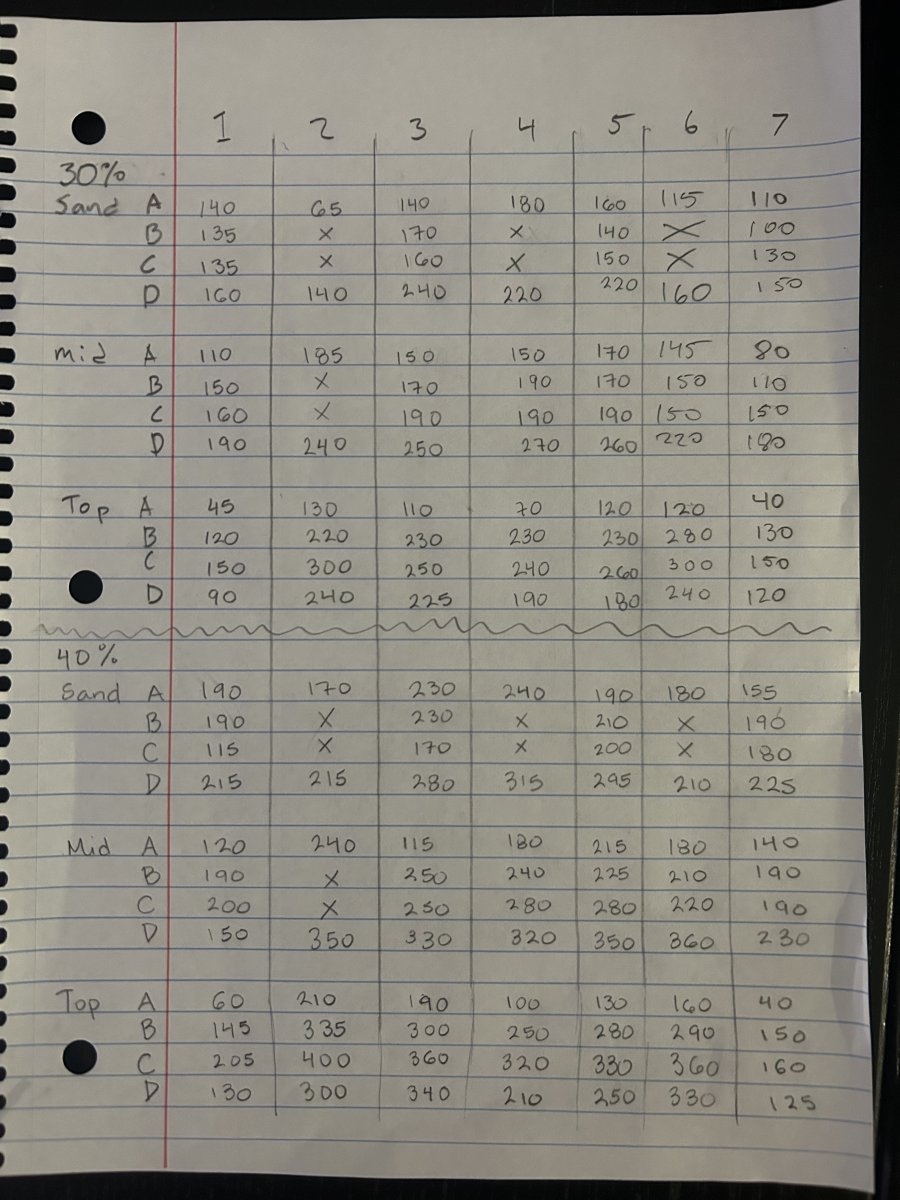 1 2 3 4 5 6 7
30%
Sand A 140 65 140 180 160 115 110
B 135 X 170 X 140 X 100
C 135 X 160 X 150 X 130
D 160 140 240 220 220 160 150
Mid A 110 185 150 150 170 145 80
B 150 X 170 190 170 150 110
C 160 X 190 190 190 150 150
D 190 240 250 270 260 220 180
Top A 45 130 110 70 120 120 40
B 120 220 230 230 230 280 130
C 150 300 250 240 260 300 150
D 90 240 225 190 180 240 120
40%
Sand A 190 170 230 240 190 180 155
B 190 X 230 X 210 X 190
C 115 X 170 X 200 X 180
D 215 215 280 315 295 210 225
Mid A 120 240 115 180 215 180 140
B 190 X 250 240 225 210 190
C 200 X 250 280 280 220 190
D 150 350 330 320 350 360 230
Top A 60 210 190 100 130 160 40
B 145 335 300 250 280 290 150
C 205 400 360 320 330 360 160
D 130 300 340 210 250 330 125